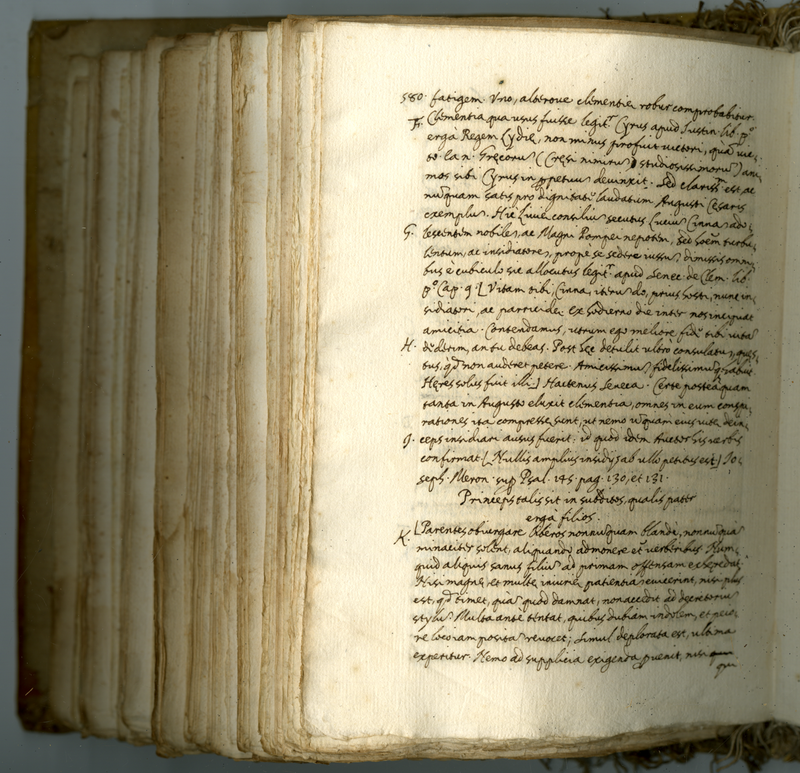 580. fatigem. Uno, alterove clementiæ robur comprobabitur.
F. Clementia qua usus fuisse legit.r Cyrus apud Justin. lib. p.o
ergà Regem Lydiæ, non minus profuit victori, quā vic-
to. Nā Grecorū (Cresi nimirū studiosissimorū) ani-
mos sibi Cyrus in ꝑpetuū devinxit. Sed clariss. est, ac
nūquam satis pro dignitate laudatum Augusti Cesaris
exemplū. Hic Liviæ consiliū secutus Luciū Cinnā ado-
G. lescentem nobilē, ac Magni Pompei nepotem, sed hoīem turbu-
lentum, ac insidiatorē, prope se sedere iussū dimissis omni-
bus è cubiculo sic allocutus legit.r apud Senec. de Clem. lib.
p.o Cap. 9. [Vitam tibi Cinna, iterū do, prius hosti, nunc in-
sidiatori, ac parricidæ. Ex hodierno die inter nos incipiat
amicitia. Contendamus, utrum ego meliore fide tibi vitā
H. dederim, an tu debeas. Post hec detulit ultrò consulatū, ques-
tus, qd non auderet petere. Amicissimū fidelissimūq; habuit.
Heres solus fuit illi.] Hactenus Seneca. Certe posteà quam
tanta in Augusto eluxit clementia, omnes in eum conspi-
rationes ita compressæ sunt, ut nemo unquam eius vitæ dein-
I. ceps insidiari ausus fuerit; id quod idem Auctor his verbis
confirmat [Nullis amplius insidijs ab ullo petitus est] Jo-
seph. Meron. sup Psal. 145. pag. 130, et 131.
Princeps talis sit in subditos, qualis pater
ergà filios.
K. [Parentes obiurgare liberos nonnunquam blandè, nonnunquā
minaciter solent, aliquando admonere et verberibus. Num-
quid aliquis sanus filiū ad primam offensam exheredat?
Nisi magnæ, et multæ iniuriæ patientiā evicerint, nisi plus
est, qd timet, quā quod damnat, non accedit ad decretoriū
stylū. Multa antè tentat, quibus dubiam indolem, et peio-
re loco iam positā revocet; simul deplorata est, ultima
experitur. Nemo ad supplicia exigenda ꝑvenit, nisi
qui